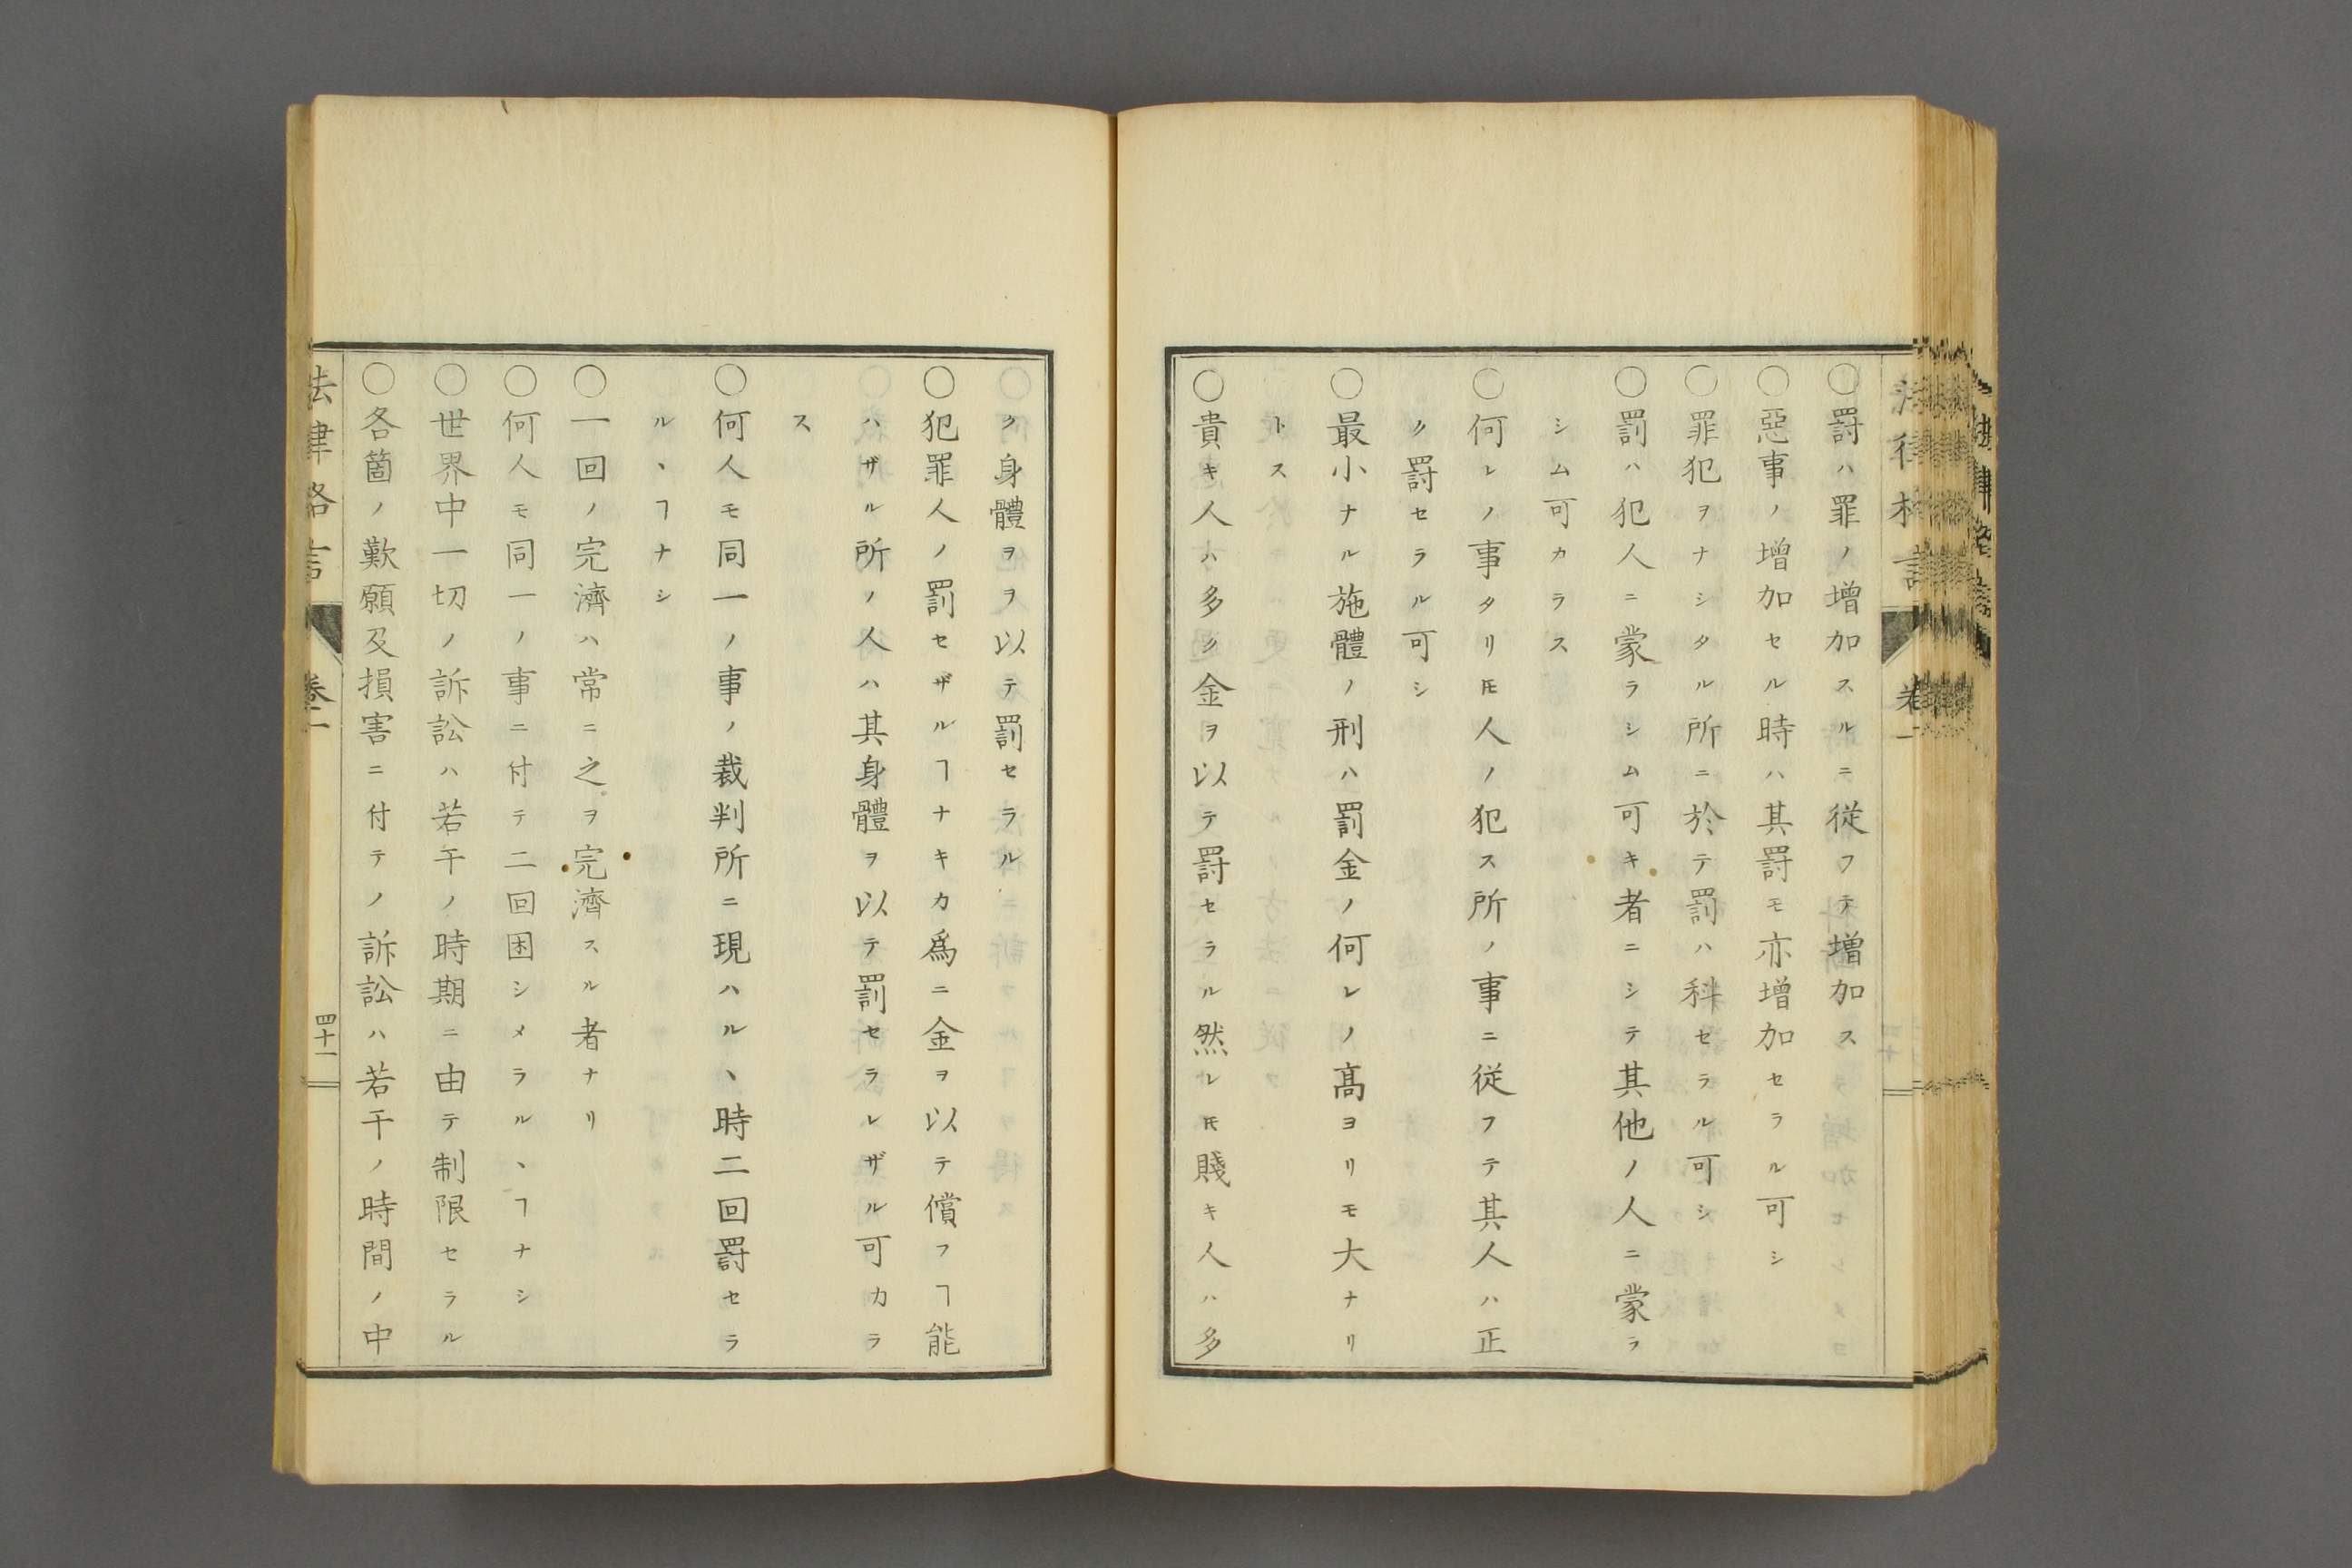 ○罸ハ罪ノ增加スルニ従フテ增加ス
○惡事ノ增加セル時ハ其罸モ亦增加セラル可シ
○罪犯ヲナシタル所ニ於テ罰ハ科セラル可シ
○罰ハ犯人ニ蒙ラシム可キ者ニシテ其他ノ人ニ蒙ラ
シム可カラス
○何レノ事タリ𪜈人ノ犯ス所ノ事ニ従フテ其人ハ正
ク罸セラル可シ
○最小ナル施體ノ刑ハ罰金ノ何レノ髙ヨリモ大ナリ
トス
○貴キ人ハ多ク金ヲ以テ罸セラル然レ𪜈賤キ人ハ多
ク身體ヲヲ以テ罰セラル
○犯罪人ノ罰セザルヿナキカ爲ニ金ヲ以テ償フヿ能
ハザル所ノ人ハ其身體ヲ以テ罰セラレザル可カラ
ス
○何人モ同一ノ事ノ裁判所ニ現ハルヽ時二回罸セラ
ルヽヿナシ
○一回ノ完濟ハ常ニ之ヲ完濟スル者ナリ
○何人モ同一ノ事ニ付テ二回困シメラルヽヿナシ
○世界中一切ノ訴訟ハ若干ノ時期ニ由テ制限セラル
○各箇ノ歎願及損害ニ付テノ訴訟ハ若干ノ時間ノ中
法律格言 卷一 四十一